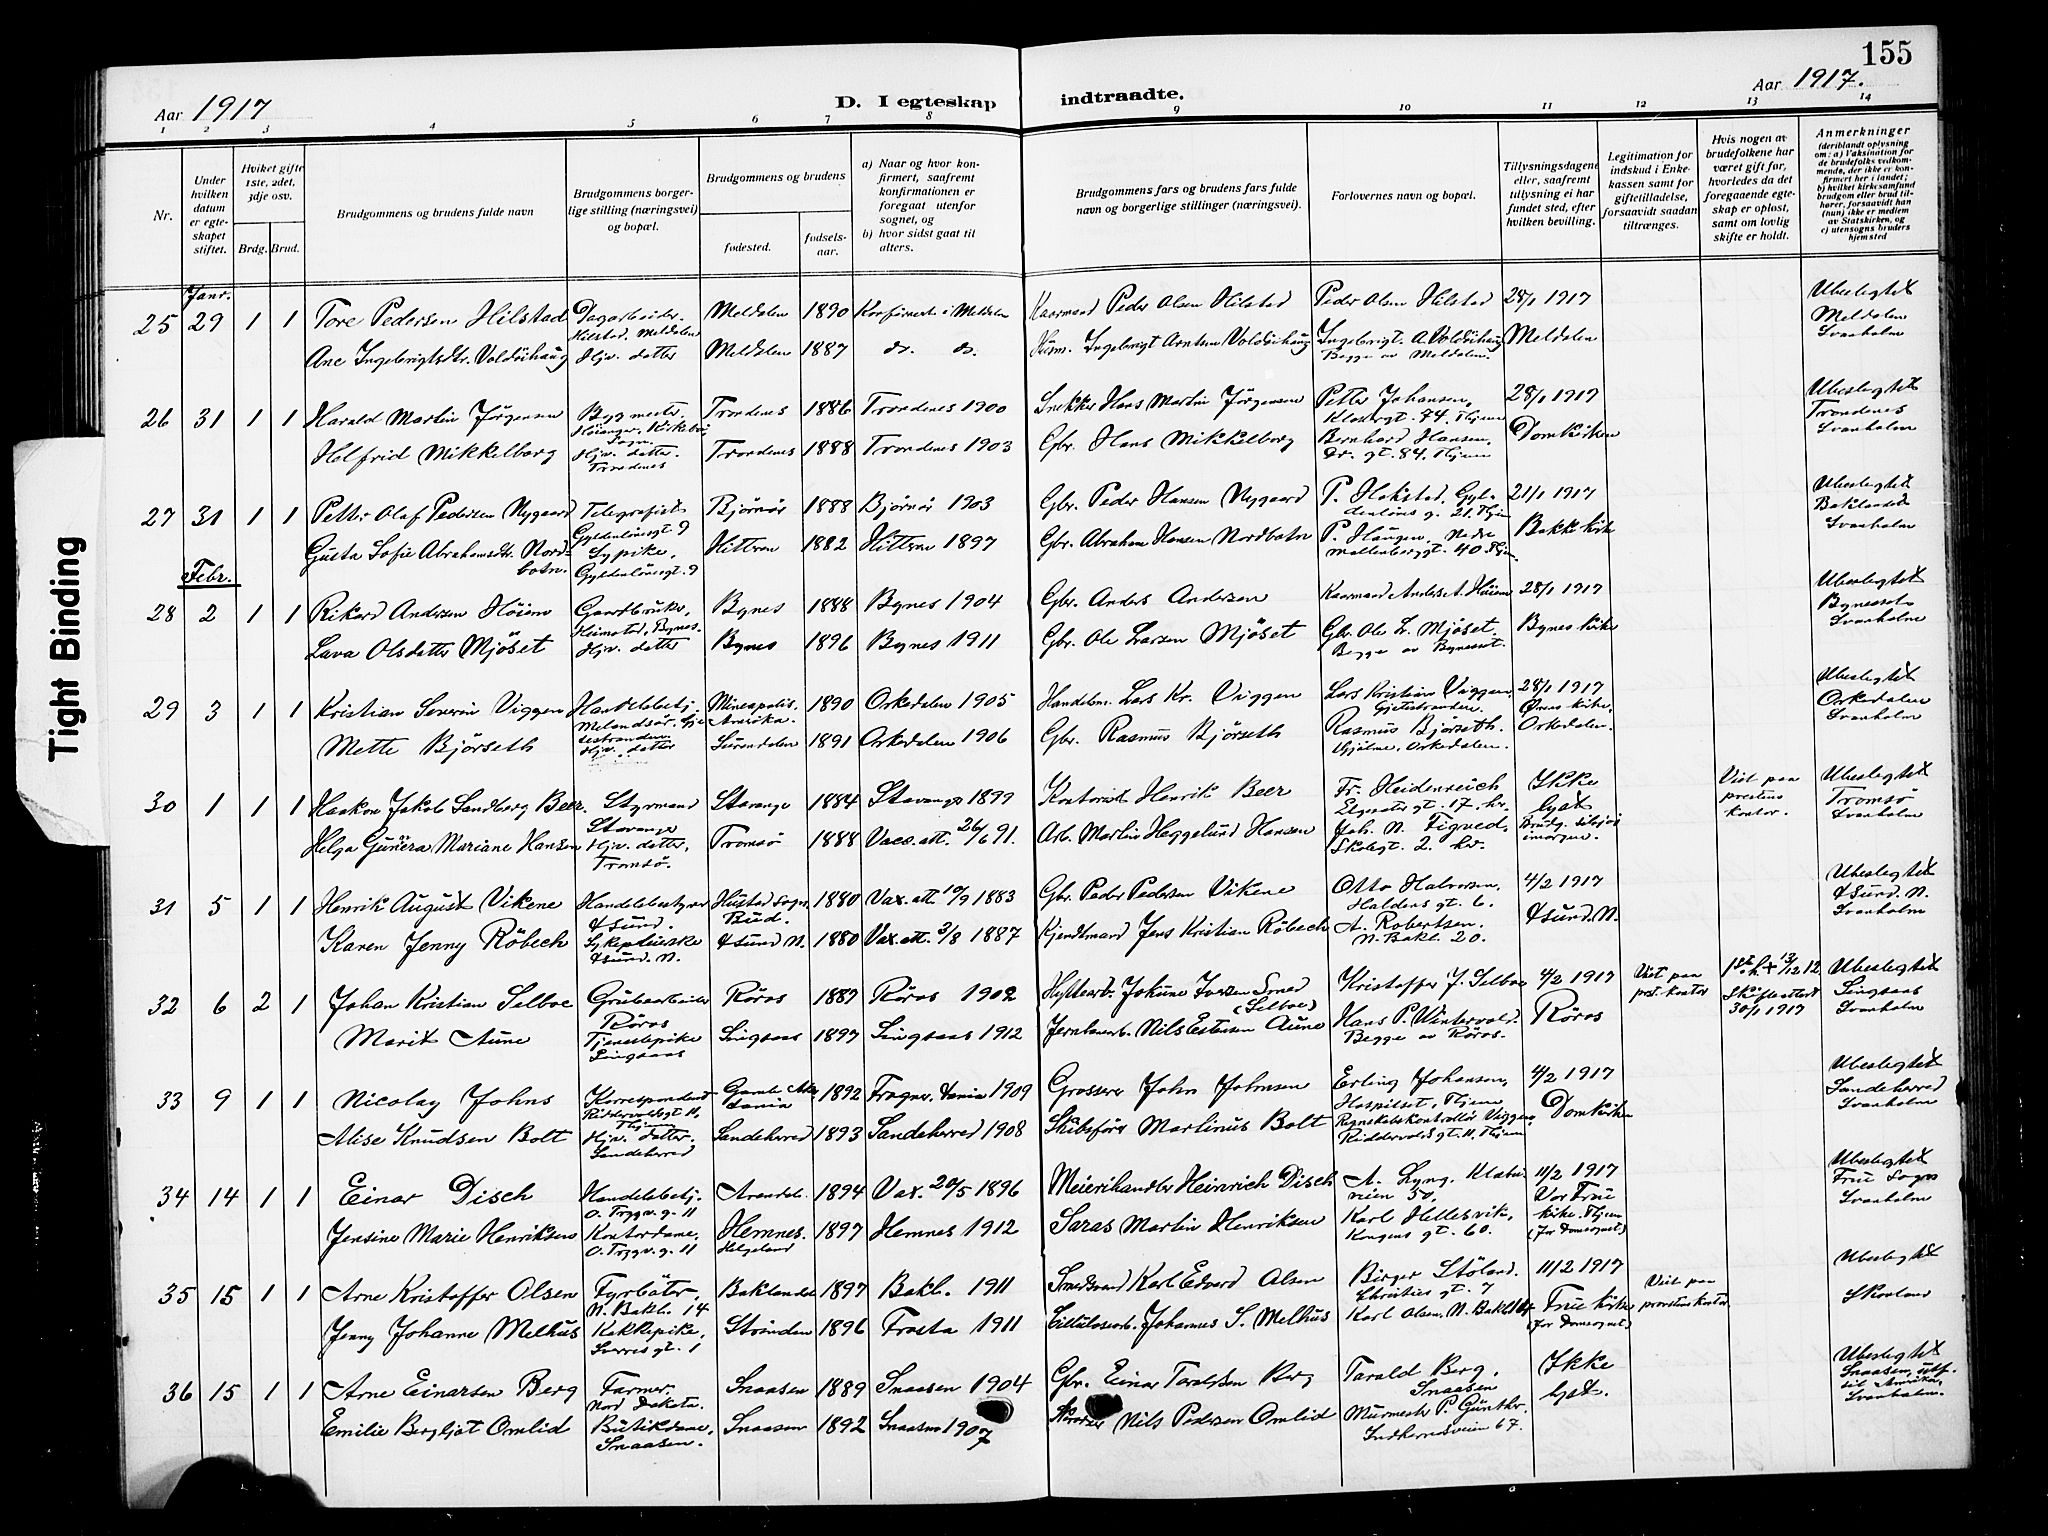 155
Aar 1917 D. I egteskap indtraadte. Aar 1917.
1 2 3 4 5 6 7 8 9 10 11 12 13 14
Nr.
Under hvilken datum er egteskapet stiftet.
Hviket gifte 1ste, 2det, 3dje osv.
Brdg. Brud.
Brudgommens og brudens fulde navn
Brudgommens borgerlige stilling (næringsvei) og bopæl.
Brudgommens og brudens
fødested.
fødselsaar.
a) Naar og hvor konfirmert, saafremt konfirmationen er foregaat utenfor sognet, og
b) hvor sidst gaat til alters.
Brudgommens fars og brudens fars fulde navn og borgerlige stillinger (næringsvei).
Forlovernes navn og bopæl.
Tillysningsdagene eller, saafremt tillysning ei har fundet sted, efter hvilken bevilling.
Legitimation for indskud i Enkekassen samt for giftetilladelse, forsaavidt saadan tiltrænges.
Hvis nogen av brudefolkene har været gift før, hvorledes da det foregaaende egteskap er opløst, samt om lovlig skifte er holdt.
Anmerkninger (deriblandt oplysning om: a) Vaksination for de brudefolks vedkommende, der ikke er konfirmert her i landet; b) hvilket kirkesamfund brudgom eller brud tilhører, forsaavidt han (hun) ikke er medlem av Statskirken, og c) utensogns bruders hjemsted
Janr.
25 29 1 1 Tore Pedersen Hilstad Dagarbeider Hilstad, Meldalen Meldalen 1890 Konfirmert i Meldalen Kaarmand Peder Olsen Hilstad Peder Olsen Hilstad 28/1 1917 Ubeslegtet Meldalen Svanholm
Ane Ingebrigtsdtr. Voldöihaug Hjv. datter Meldalen 1887 do. do. Husm. Ingebrigt Arntsen Voldöihaug Ingebrigt. A. Voldöihaug Begge av Meldalen. Meldalen
26 31 1 1 Harald Martin Jørgensen Bygmester, Høianger, Kirkebø, Sogn. Trondenes 1886 Trondenes 1900 Snekker Hans Martin Jørgensen Petter Johansen, Klostergt. 74. Thjem 28/1 1917 Ubeslegtet Trondenes Svanholm
Helfrid Mikkelborg Hjv. datter. Trondenes Trondenes 1888 Trondenes 1903 Gbr. Hans Mikkelborg Bernhard Hansen, Dr. gt. 84. Thjem Domkirken
27 31 1 1 Petter Olaf Pedersen Nygaard Telegrafist Gyldenlövesgt 9 Bjørnør 1888 Bjørnør 1903 Gbr. Peder Hansen Nygaard P. Hokstad, Gyldenlöves g. 21. Thjem 21/1 1917 Ubeslegtet Baklandet Svanholm
Gusta Sofie Abrahamsdtr. Nordbotn. Sypike, Gyldenlövesgt. 9 Hitteren 1882 Hitteren 1897 Gbr. Abraham Hansen Nordbotn P. Haugen, Nedre Møllenberggt. 40 Thjem Bakke kirke
Febr.
28 2 1 1 Rikard Andersen Höiem Gaardbruker, Heimstad, Bynes. Bynes 1888 Bynes 1904 Gbr. Anders Andersen Kaarmand Anders A. Höiem 28/1 1917 Ubeslegtet Bynesset Svanholm
Lava Olsdatter Mjöset Hjv. datter Bynes 1896 Bynes 1911 Gbr. Ole Larsen Mjöset Gbr. Ole L. Mjöset. Begge av Bynesset. Bynes kirke
29 3 1 1 Kristian Severin Viggen Handelsbetj. Melandsør, Gjeitestranden Mineapolis, Amerika. 1890 Orkedalen 1905 Handelsm. Lars Kr. Viggen Lars Kristian Viggen, Gjeitestranden. 28/1 1917 Ørnes kirke Ubeslegtet Orkedalen Svanholm
Mette Björseth Hjv. datter Surendalen 1891 Orkedalen 1906 Gbr. Rasmus Björseth Rasmus Björseth. Gjølme, Orkedalen. Orkedalen.
30 1 1 1 Haakon Jakob Sandberg Beer. Styrmand Stavanger Stavanger 1884 Stavanger 1899 Kontorist Henrik Beer Fr. Heidenreich Elgesæter gt. 17. hv. Ikke lyst Vist paa prestens kontor. Ubeslegtet Tromsö Svanholm
Helga Gunera Mariane Hansen Hjv. datter, Tromsö. Tromsö 1888 Vacc. att. 26/6 91. Arb. Martin Heggelund Hansen Joh. N. Figved, Skolegt. 2. hv. Brudg. tilsjøs imorgen.
31 5 1 1 Henrik August Vikene Handelsbestyrer Xsund. Hustad sogn, Bud. 1880 Vax. att. 10/9 1883 Gbr. Peder Pedersen Vikene Otto Halvorsen, Haldens gt. 6. 4/2 1917 Ubeslegtet Xsund. N. Svanholm
Karen Jenny Röbech Sykepleierske Xsund. N. Xsund N. 1880 Vax. att. 3/8 1887 Kjendtmand Jens Kristian Röbech A. Robertsen. N. Bakl. 20. Xsund. N.
32 6 2 1 Johan Kristian Selboe Grubearbeider Röros Röros 1887 Röros 1902 Hyttearb. Jokum Iversen Smed (Selboe) Kristoffer J. Selboe 4/2 1917 Vist paa pst. kontor 1ste h. + 13/12 12 Skifteattest 30/1 1917 Ubeslegtet Singsaas Svanholm
Marit Aune Tjenestepike Singsaas Singsaas 1897 Singsaas 1912 Jernbanearb. Nils Estensen Aune Hans P. Wintervold. Begge av Röros. Röros
33 9 1 1 Nicolay Johns Korrespondent Riddervoldsgt 11, Thjem Gamle Aker Xania 1892 Frogner, Xania 1909 Grosserer John Johnsen Erling Johansen, Hospitset, Thjem 4/2 1917 Ubeslegtet Sandeherred Svanholm
Alise Knudsen Bolt Hjv. datter, Sandeherred Sandeherred 1893 Sandeherred 1908 Skibsfører Martinus Bolt Regnskabskontrollør Viggen, Riddervolds gt. 11, Thjem Domkirken
34 14 1 1 Einar Disch Handelsbetj. O. Trygv. g. 11 Arendal. 1894 Vax. 20/5 1896 Meierihandler Heinrich Disch A. Lyng, Klæbuveien 50. 11/2 1917 Vor Frue kirke. Thjem (for Domsognet) Ubeslegtet Frue Sogn Svanholm
Jensine Marie Henriksen Kontordame, O. Trygv. g. 11 Hemnes. Helgeland 1897 Hemnes 1912 Saras Martin Henriksen Karl Hellesvik, Kongens gt. 60.
35 15 1 1 Arne Kristoffer Olsen Fyrbøter, N. Bakl. 14 Baklandet 1897 Bakl. 1911 Smedsvend Karl Edvard Olsen Birger Støland. Christies gt. 7 11/2 1917 Vist paa prestens kontor Ubeslegtet
Jenny Johanne Melhus Kokkepike, Sverres gt. 1 Strinden 1896 Frosta 1911 Cellulosearb. Johannes S. Melhus Karl Olsen, N. Bakl. 14 Frue kirke (for Domsognet)
36 15 1 1 Arne Einarsen Berg Farmer. Nord Dakota. Snaasen 1889 Snaasen 1904 Gbr. Einar Taraldsen Berg Tarald Berg, Snaasen Ikke lyst. Ubeslegtet Snaasen, utfl. til Amerika, Svanholm.
Emilie Bergljot Omlid Butikdame, Snaasen. Snaasen 1892 Snaasen 1907 Nils Pedersen Omlid Murmester P. Günther. Indherredsveien 67.
Tight Binding